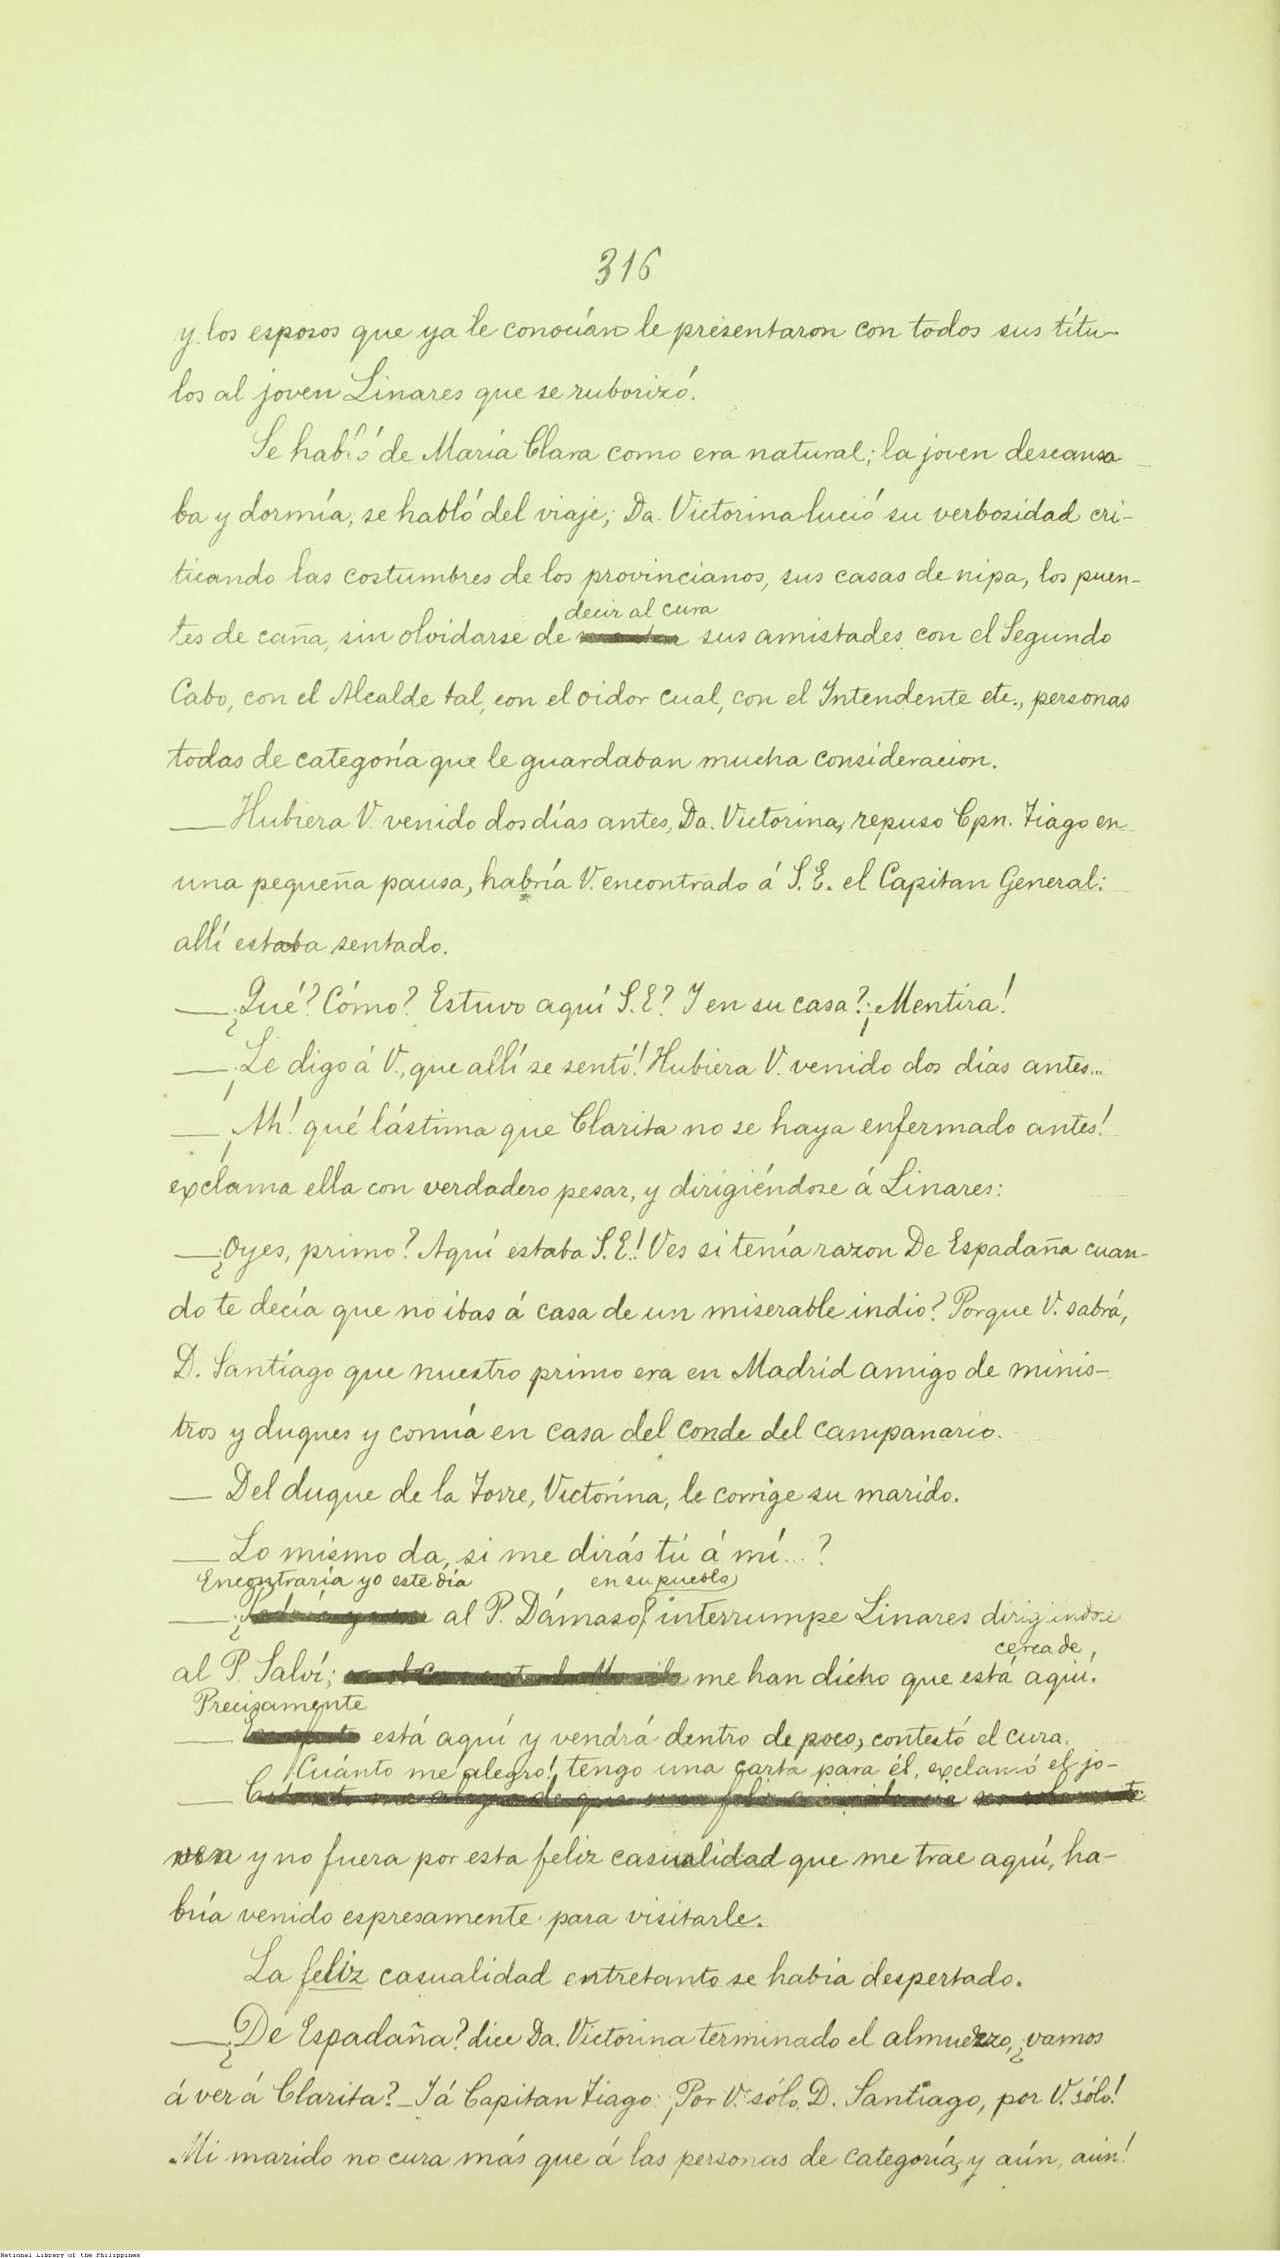 316
y los esposos que ya le conocían le presentaron con todos sus títu-
los al joven Linares que se ruborizó.
Se habló de María Clara como era natural; la joven descansa
ba y dormía; se habló del viaje; Da. Victorina lució su verbosidad cri-
ticando las costumbres de los provincianos, sus casas de nipa, los puen-
decir al cura
tes de caña, sin olvidarse de sus amistades con el Segundo
Cabo, con el Alcalde tal, con el oidor cual, con el Intendente etc., personas
todas de categoría que le guardaban mucha consideracion.
— Hubiera V. venido dos días antes, Da. Victorina, repuso Cpn. Tiago en
una pequeña pausa, habría V. encontrado á S. E. el Capitan General:
allí estaba sentado.
— ¿Qué? Cómo? Estuvo aquí S. E? Y en su casa? ¡Mentira!
— ¡Le digo á V., que allí se sentó! Hubiera V. venido dos días antes...
— ¡Ah! qué lástima que Clarita no se haya enfermado antes!
exclama ella con verdadero pesar, y dirigiéndose á Linares:
— ¿Oyes, primo? Aquí estaba S. E.! Ves si tenía razon De Espadaña cuan-
do te decía que no ibas á casa de un miserable indio? Porque V. sabrá,
D. Santiago que nuestro primo era en Madrid amigo de minis-
tros y duques y comía en casa del conde del campanario.
— Del duque de la Torre, Victorina, le corrige su marido.
— Lo mismo da, si me dirás tú á mí...?
Encontraría yo este día en su pueblo
— ¿ al P. Dámaso? interrumpe Linares dirigiendose
cerca de
al P. Salví; me han dicho que está aquí.
Precisamente
— está aquí y vendrá dentro de poco, contestó el cura.
¡Cuánto me alegro! tengo una carta para él, exclamó el jo-
—
ven y no fuera por esta feliz casualidad que me trae aquí, ha-
bría venido espresamente para visitarle.
La feliz casualidad entretanto se había despertado.
— ¿De Espadaña? dice Da. Victorina terminado el almuerzo, ¿vamos
á ver á Clarita? — Y á Capitan Tiago: ¡Por V. sólo, D. Santiago, por V. sólo!
Mi marido no cura más que á las personas de categoría, y aún, aún!
National Library of the Philippines